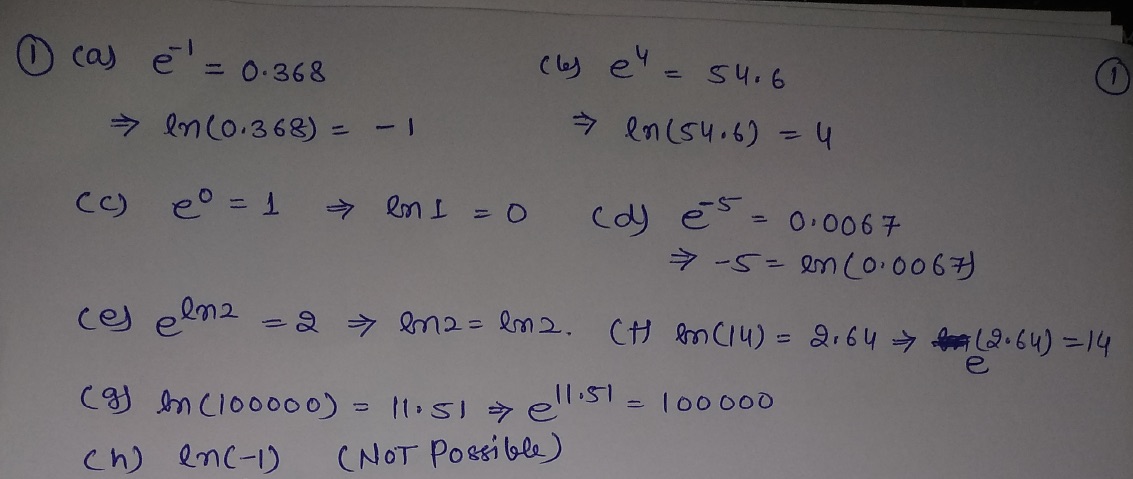 ① (a) e⁻¹ = 0.368 (b) e⁴ = 54.6 ①
⇒ ln(0.368) = -1 ⇒ ln(54.6) = 4
(c) e⁰ = 1 ⇒ ln 1 = 0 (d) e⁻⁵ = 0.0067
⇒ -5 = ln(0.0067)
(e) e^ln2 = 2 ⇒ ln2 = ln2. (f) ln(14) = 2.64 ⇒ e^(2.64) = 14
(g) ln(100000) = 11.51 ⇒ e^11.51 = 100000
(h) ln(-1) (NOT Possible)